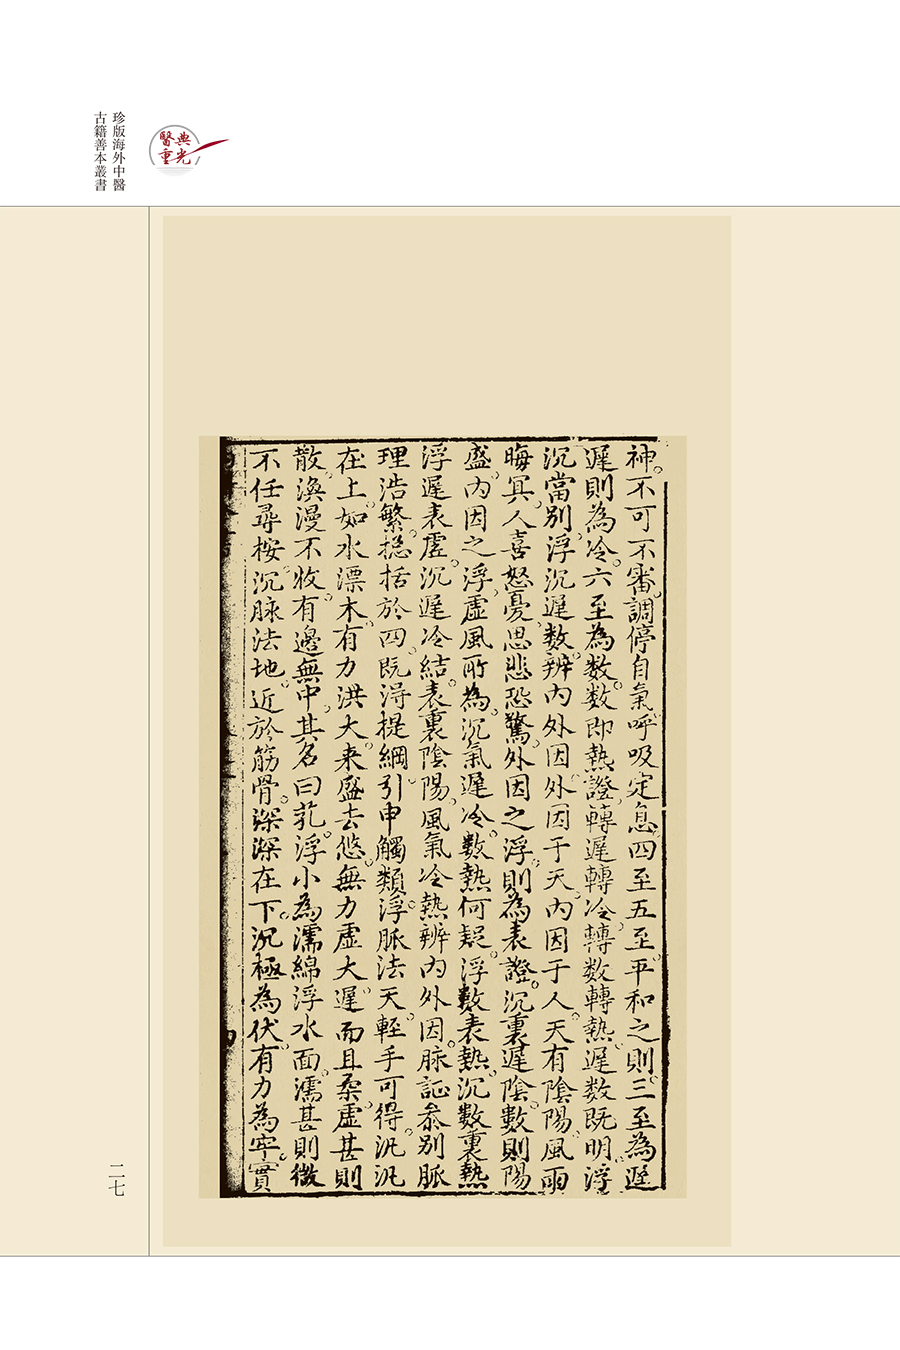 珍版海外中醫
古籍善本叢書
醫典
重光
神不可不審調停自氣呼吸定息四至五至平和之則三至為遲
遲則為冷六至為数数即熱證轉遲轉冷轉数轉熱遲数既明浮
沉當別浮沉遲数辨內外因外因于天內因于人天有陰陽風雨
晦冥人喜怒憂思悲恐驚外因之浮則為表證沉裏遲陰數則陽
盛內因之浮虛風所為沉氣遲冷數熱何疑浮數表熱沉數裏熱
浮遲表虛沉遲冷結表裏陰陽風氣冷熱辨內外因脉証叅別脈
理浩繁捴括於四既淂提綱引申觸類浮脈法天輕手可得汎汎
在上如水漂木有力洪大来盛去悠無力虛大遲而且柔虛甚則
散渙漫不收有邊無中其名曰芤浮小為濡綿浮水面濡甚則微
不任尋桉沉脉法地近於筋骨深深在下沉極為伏有力為牢實
二七